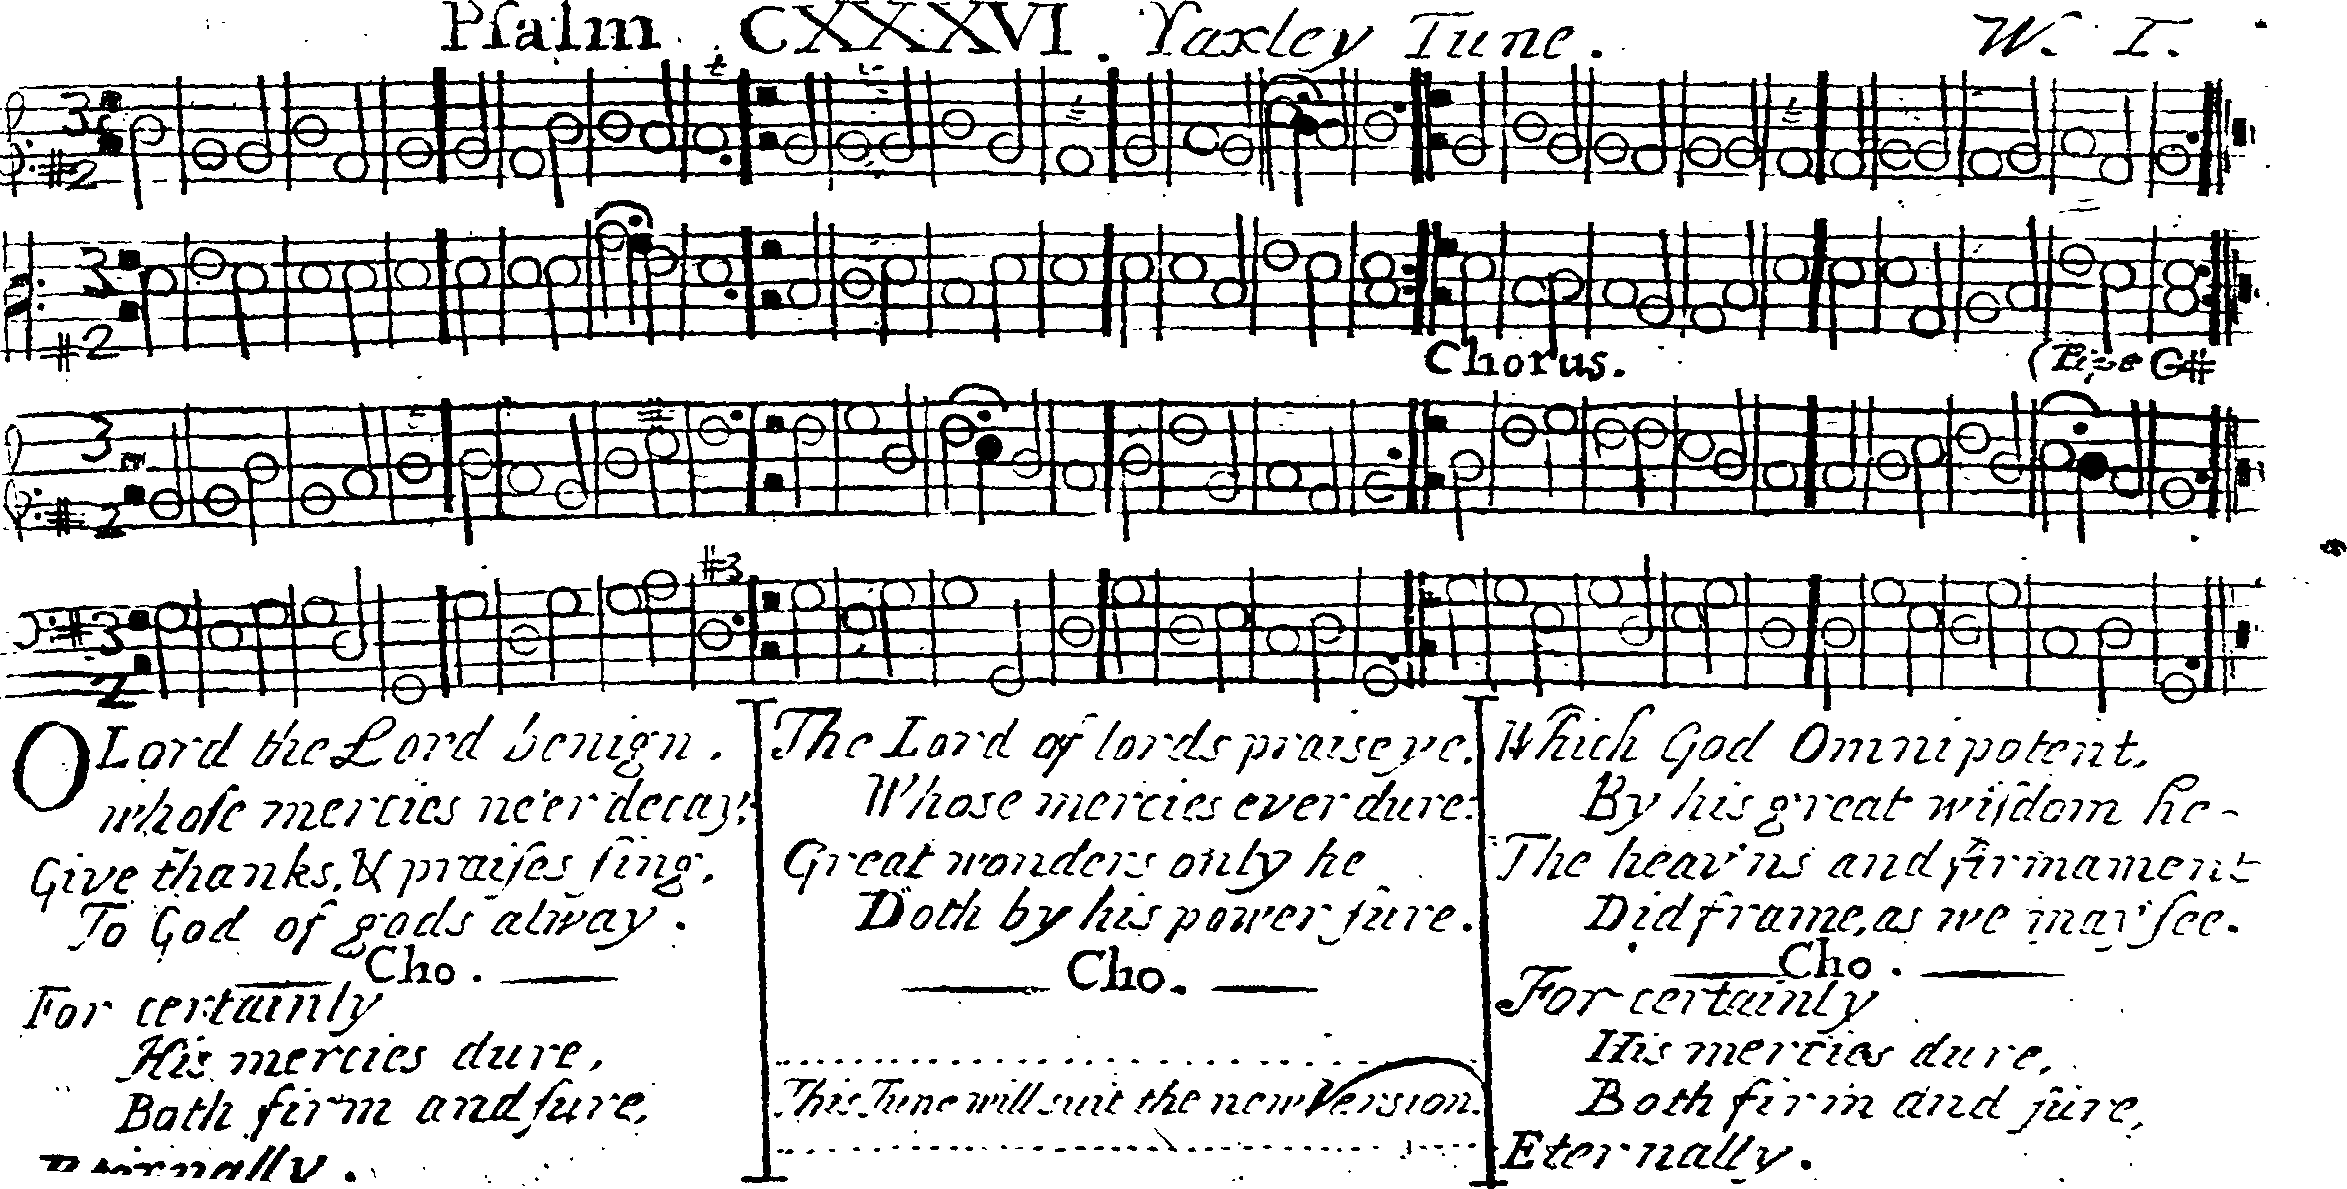 Pſalm CXXXVI. Yaxley Tune. W. I.
Chorus.
G#
O Lord the Lord benign.
whoſe mercies ne'er decay:
Give thanks, & praiſes ſing,
To God of gods alway.
Cho.
For certainly
His mercies dure,
Both firm and ſure,
Eternally.
The Lord of lords praise ye.
Whose mercies ever dure:
Great wonders only he
Doth by his power ſure.
Cho.
This Tune will suit the new Version.
Which God Omnipotent,
By his great wiſdom he-
The heav'ns and firmament
Did frame, as we may ſee.
Cho.
For certainly
His mercies dure,
Both firm and ſure,
Eternally.